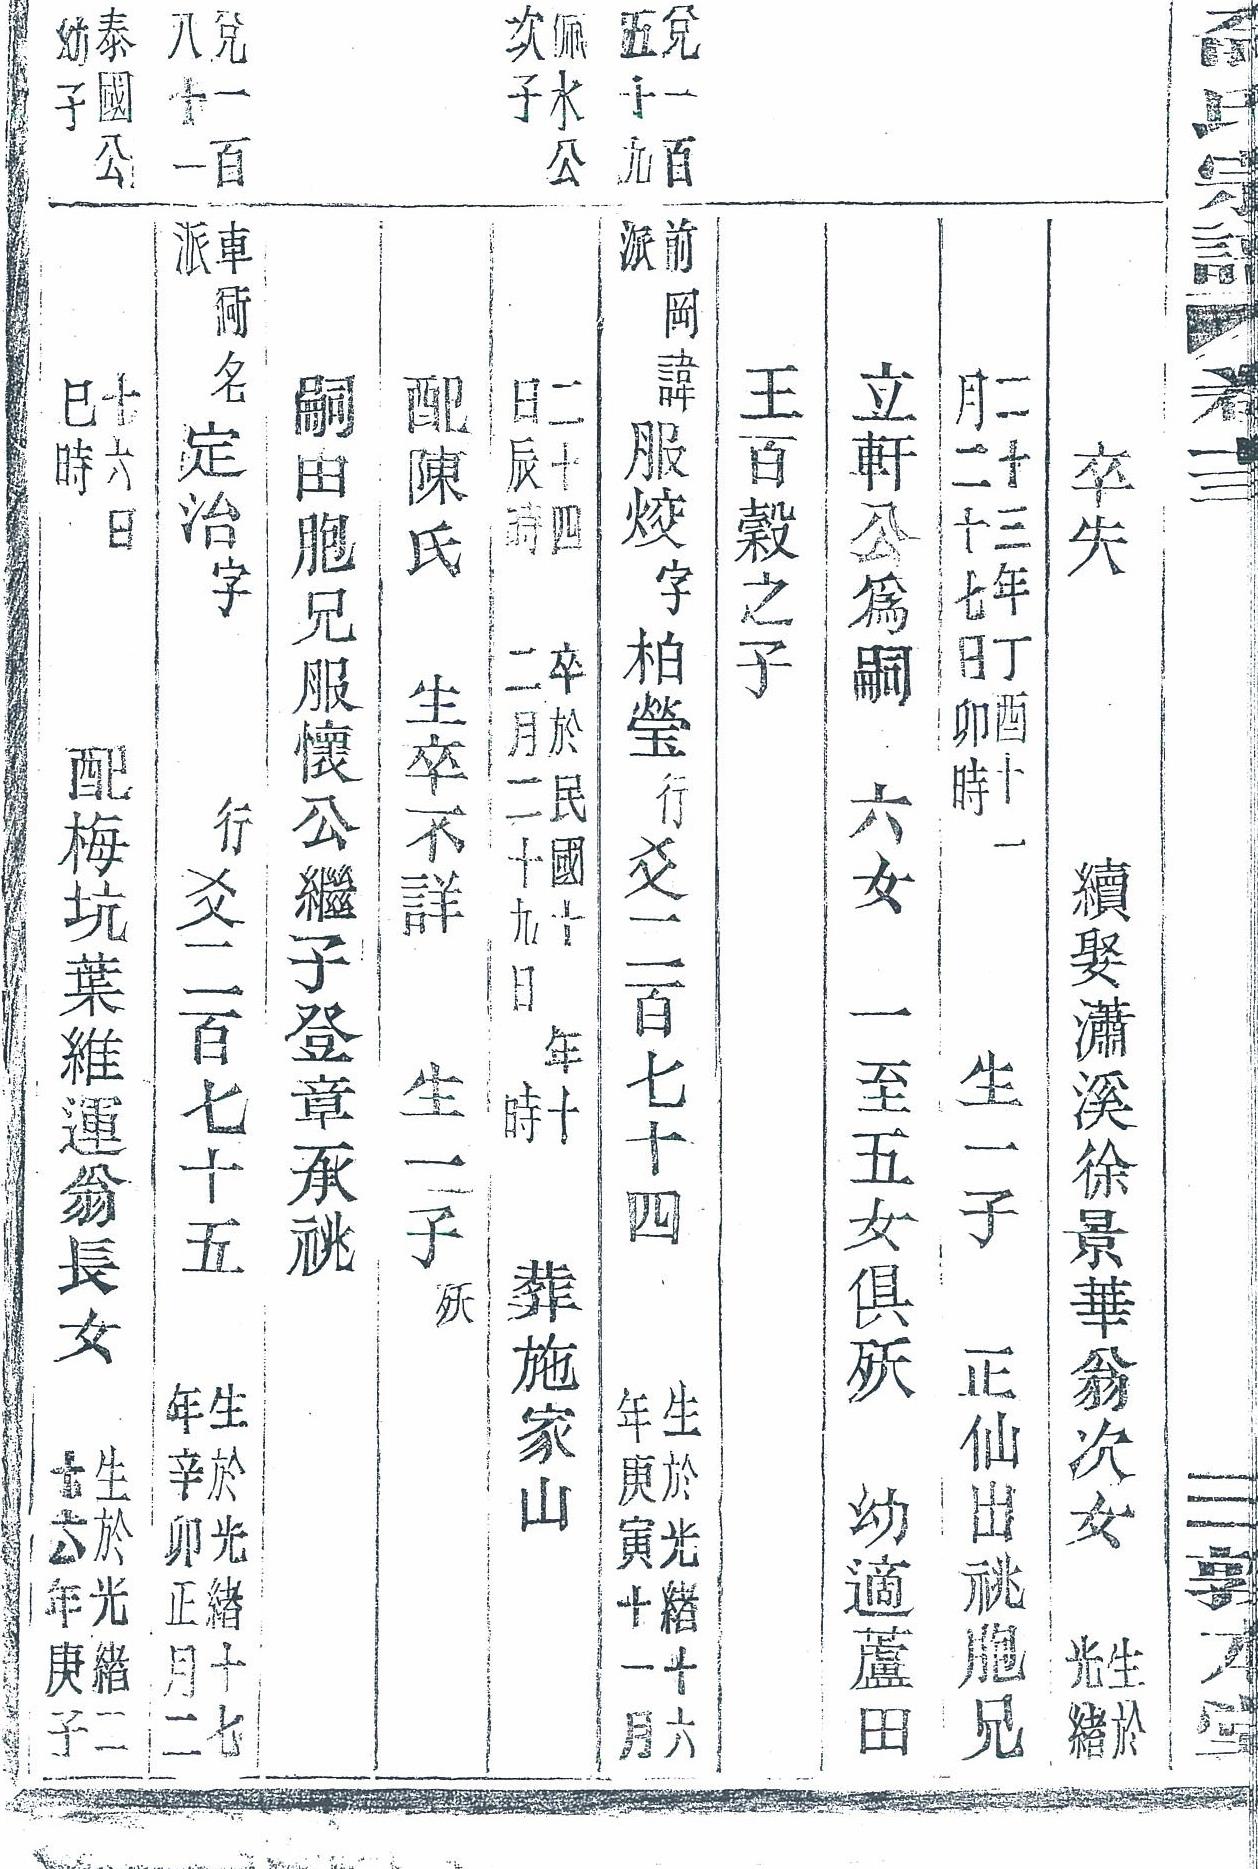 氏宗譜 卷三 三 敦本堂
卒失 續娶瀟溪徐景華翁次女 生於光緒
二十三年丁酉十一月二十七日卯時 生一子 正仙出祧胞兄
立軒公爲嗣 六女 一至五女俱殀 幼適蘆田
王百穀之子
兌一百五十九 前岡派諱服烄字柏瑩行爻二百七十四 生於光緒十六年庚寅十一月
佩水公次子 二十四日辰時 卒於民國十年十二月二十九日 時 葬施家山
配陳氏 生卒不詳 生一子殀
嗣由胞兄服懷公繼子登章承祧
兌一百八十一 車衕派名定治字 行爻二百七十五 生於光緒十七年辛卯正月二
泰國公幼子 十六日巳時 配梅坑葉維運翁長女 生於光緒二十六年庚子